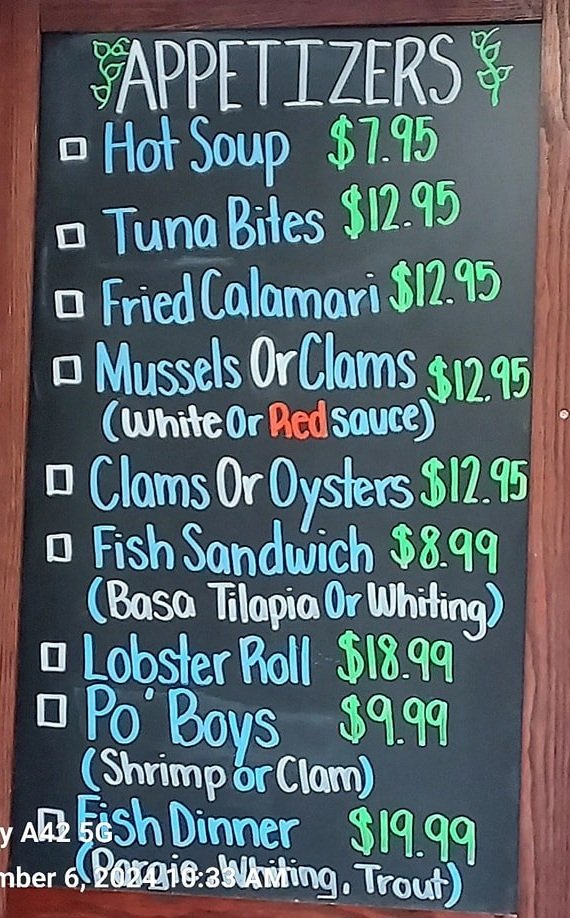 APPETIZERS
Hot Soup $7.95
Tuna Bites $12.95
Fried Calamari $12.95
Mussels Or Clams $12.95
(White Or Red sauce)
Clams Or Oysters $12.95
Fish Sandwich $8.99
(Basa Tilapia Or Whiting)
Lobster Roll $18.99
Po' Boys $9.99
(Shrimp or Clam)
Fish Dinner $19.99
y A42 5G
(Porgie, Whiting, Trout)
mber 6, 2024 10:33 AM